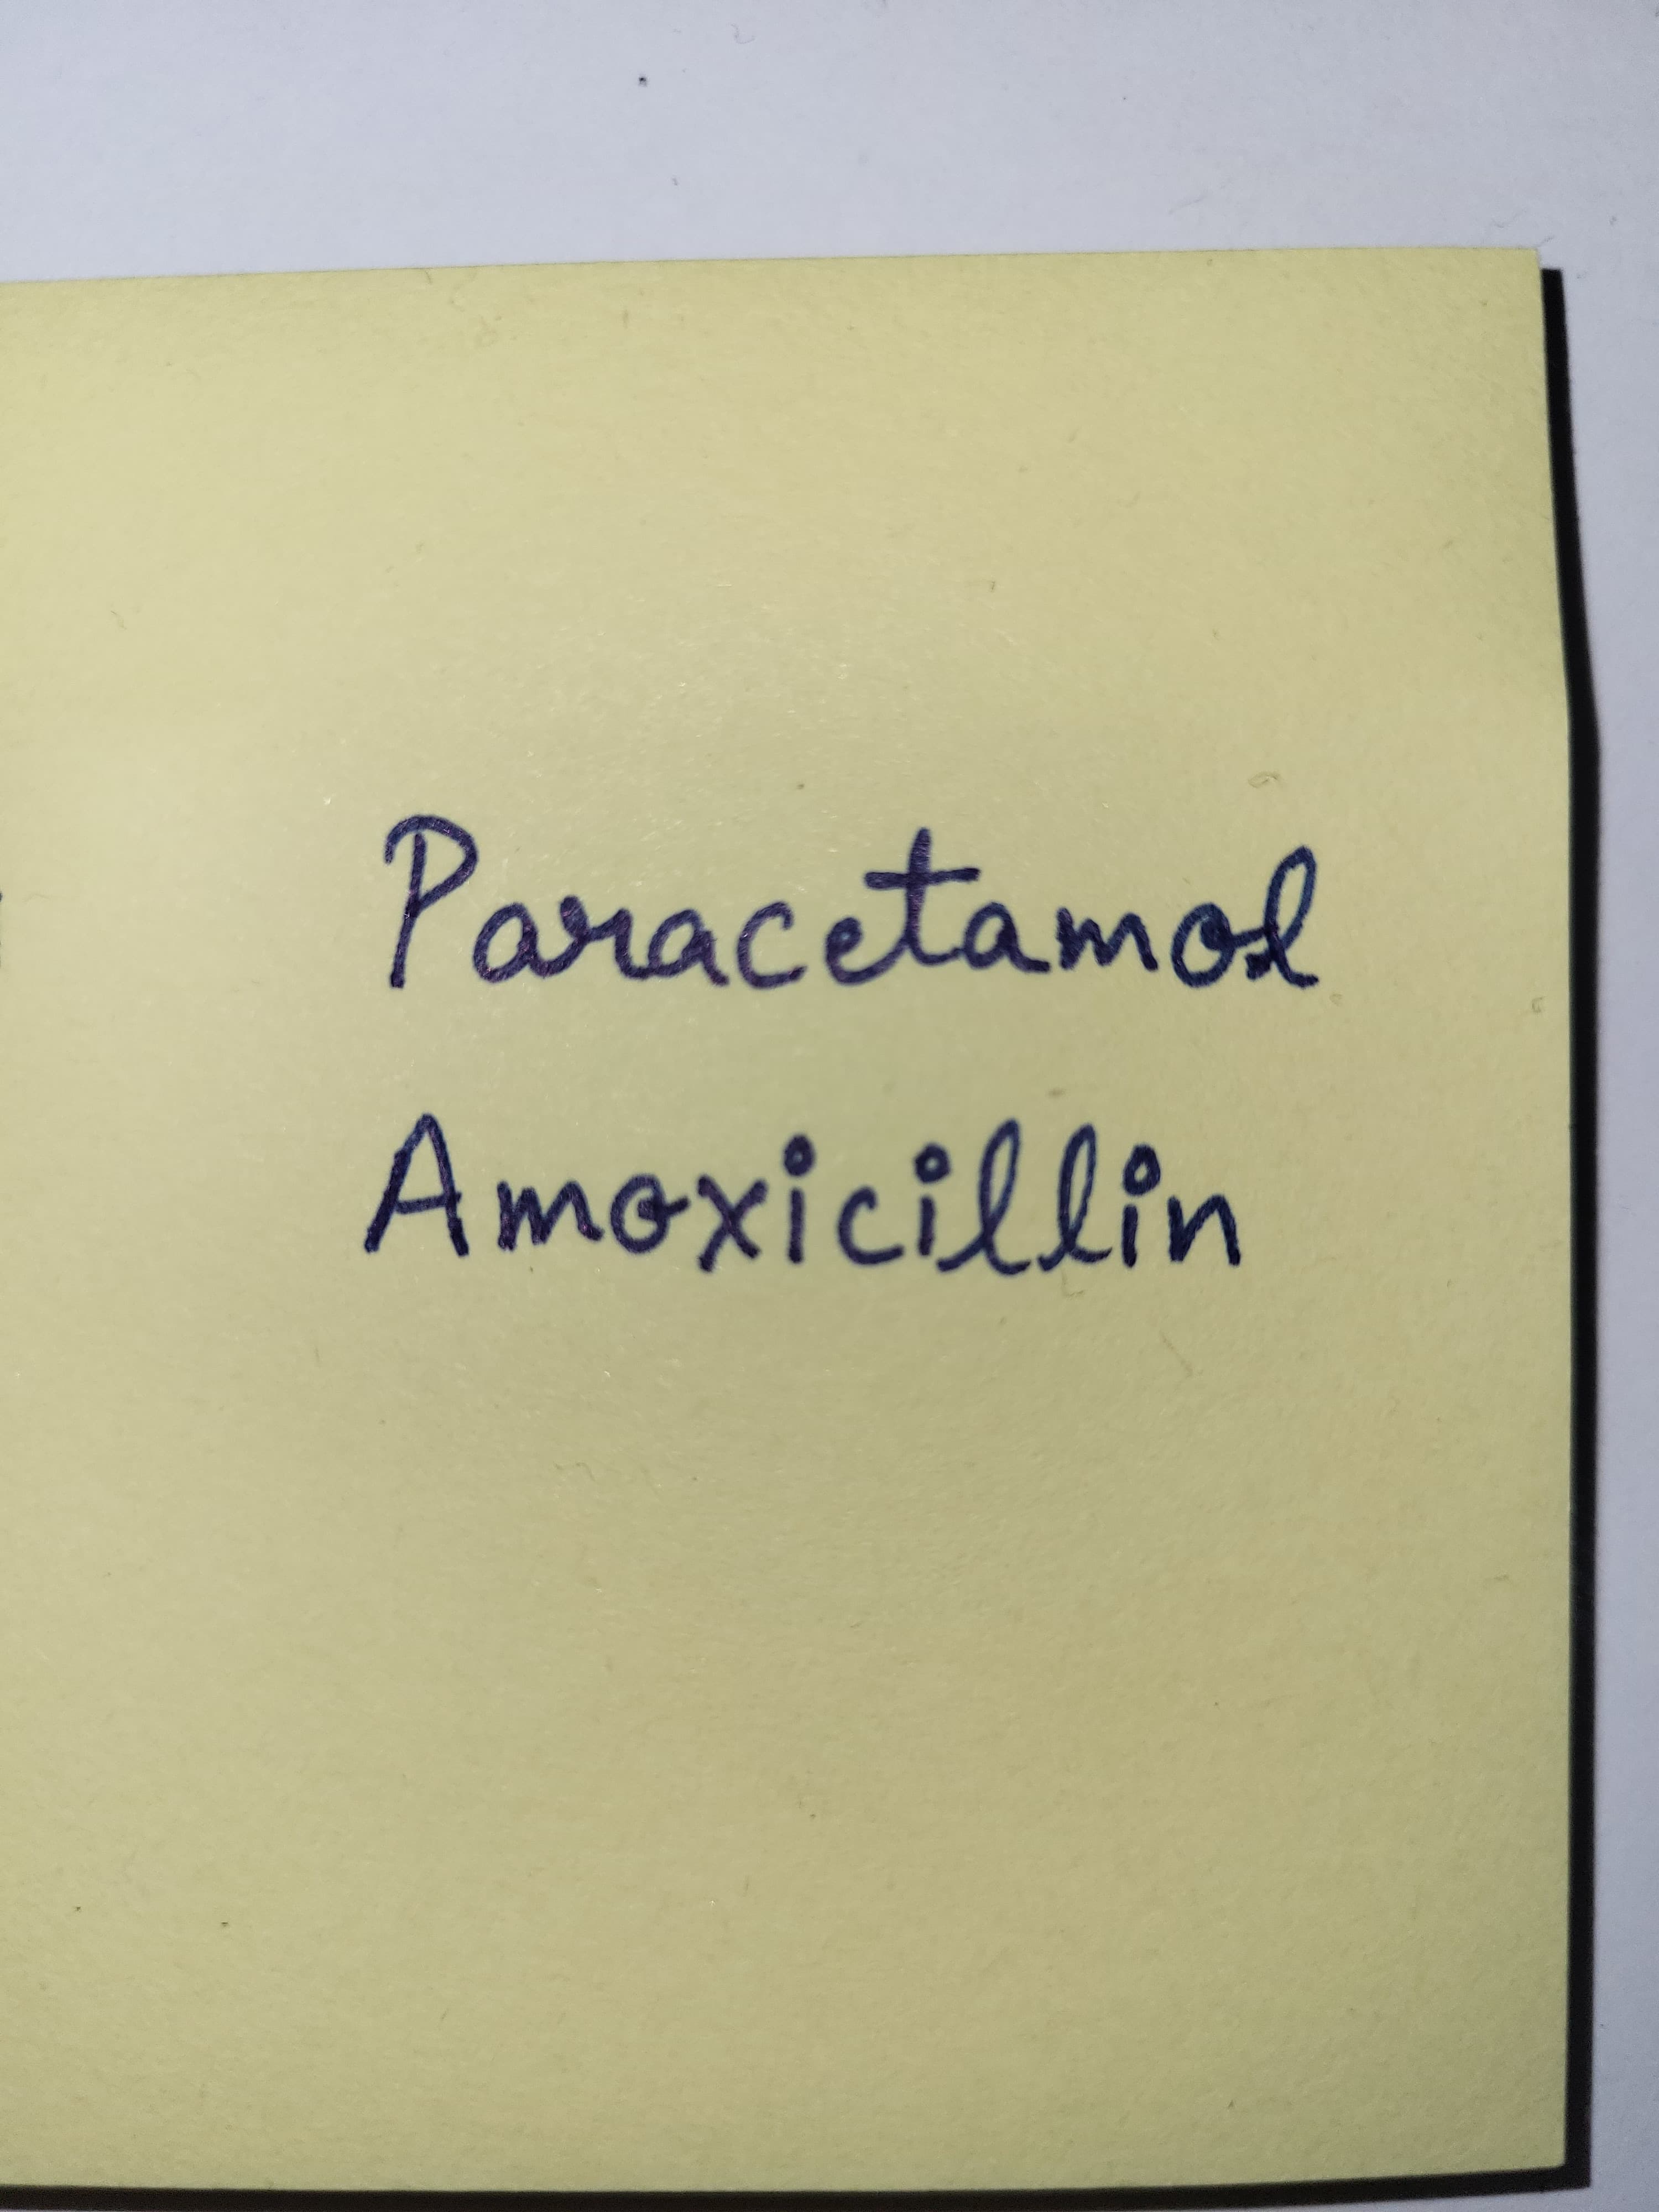 Paracetamol
Amoxicillin